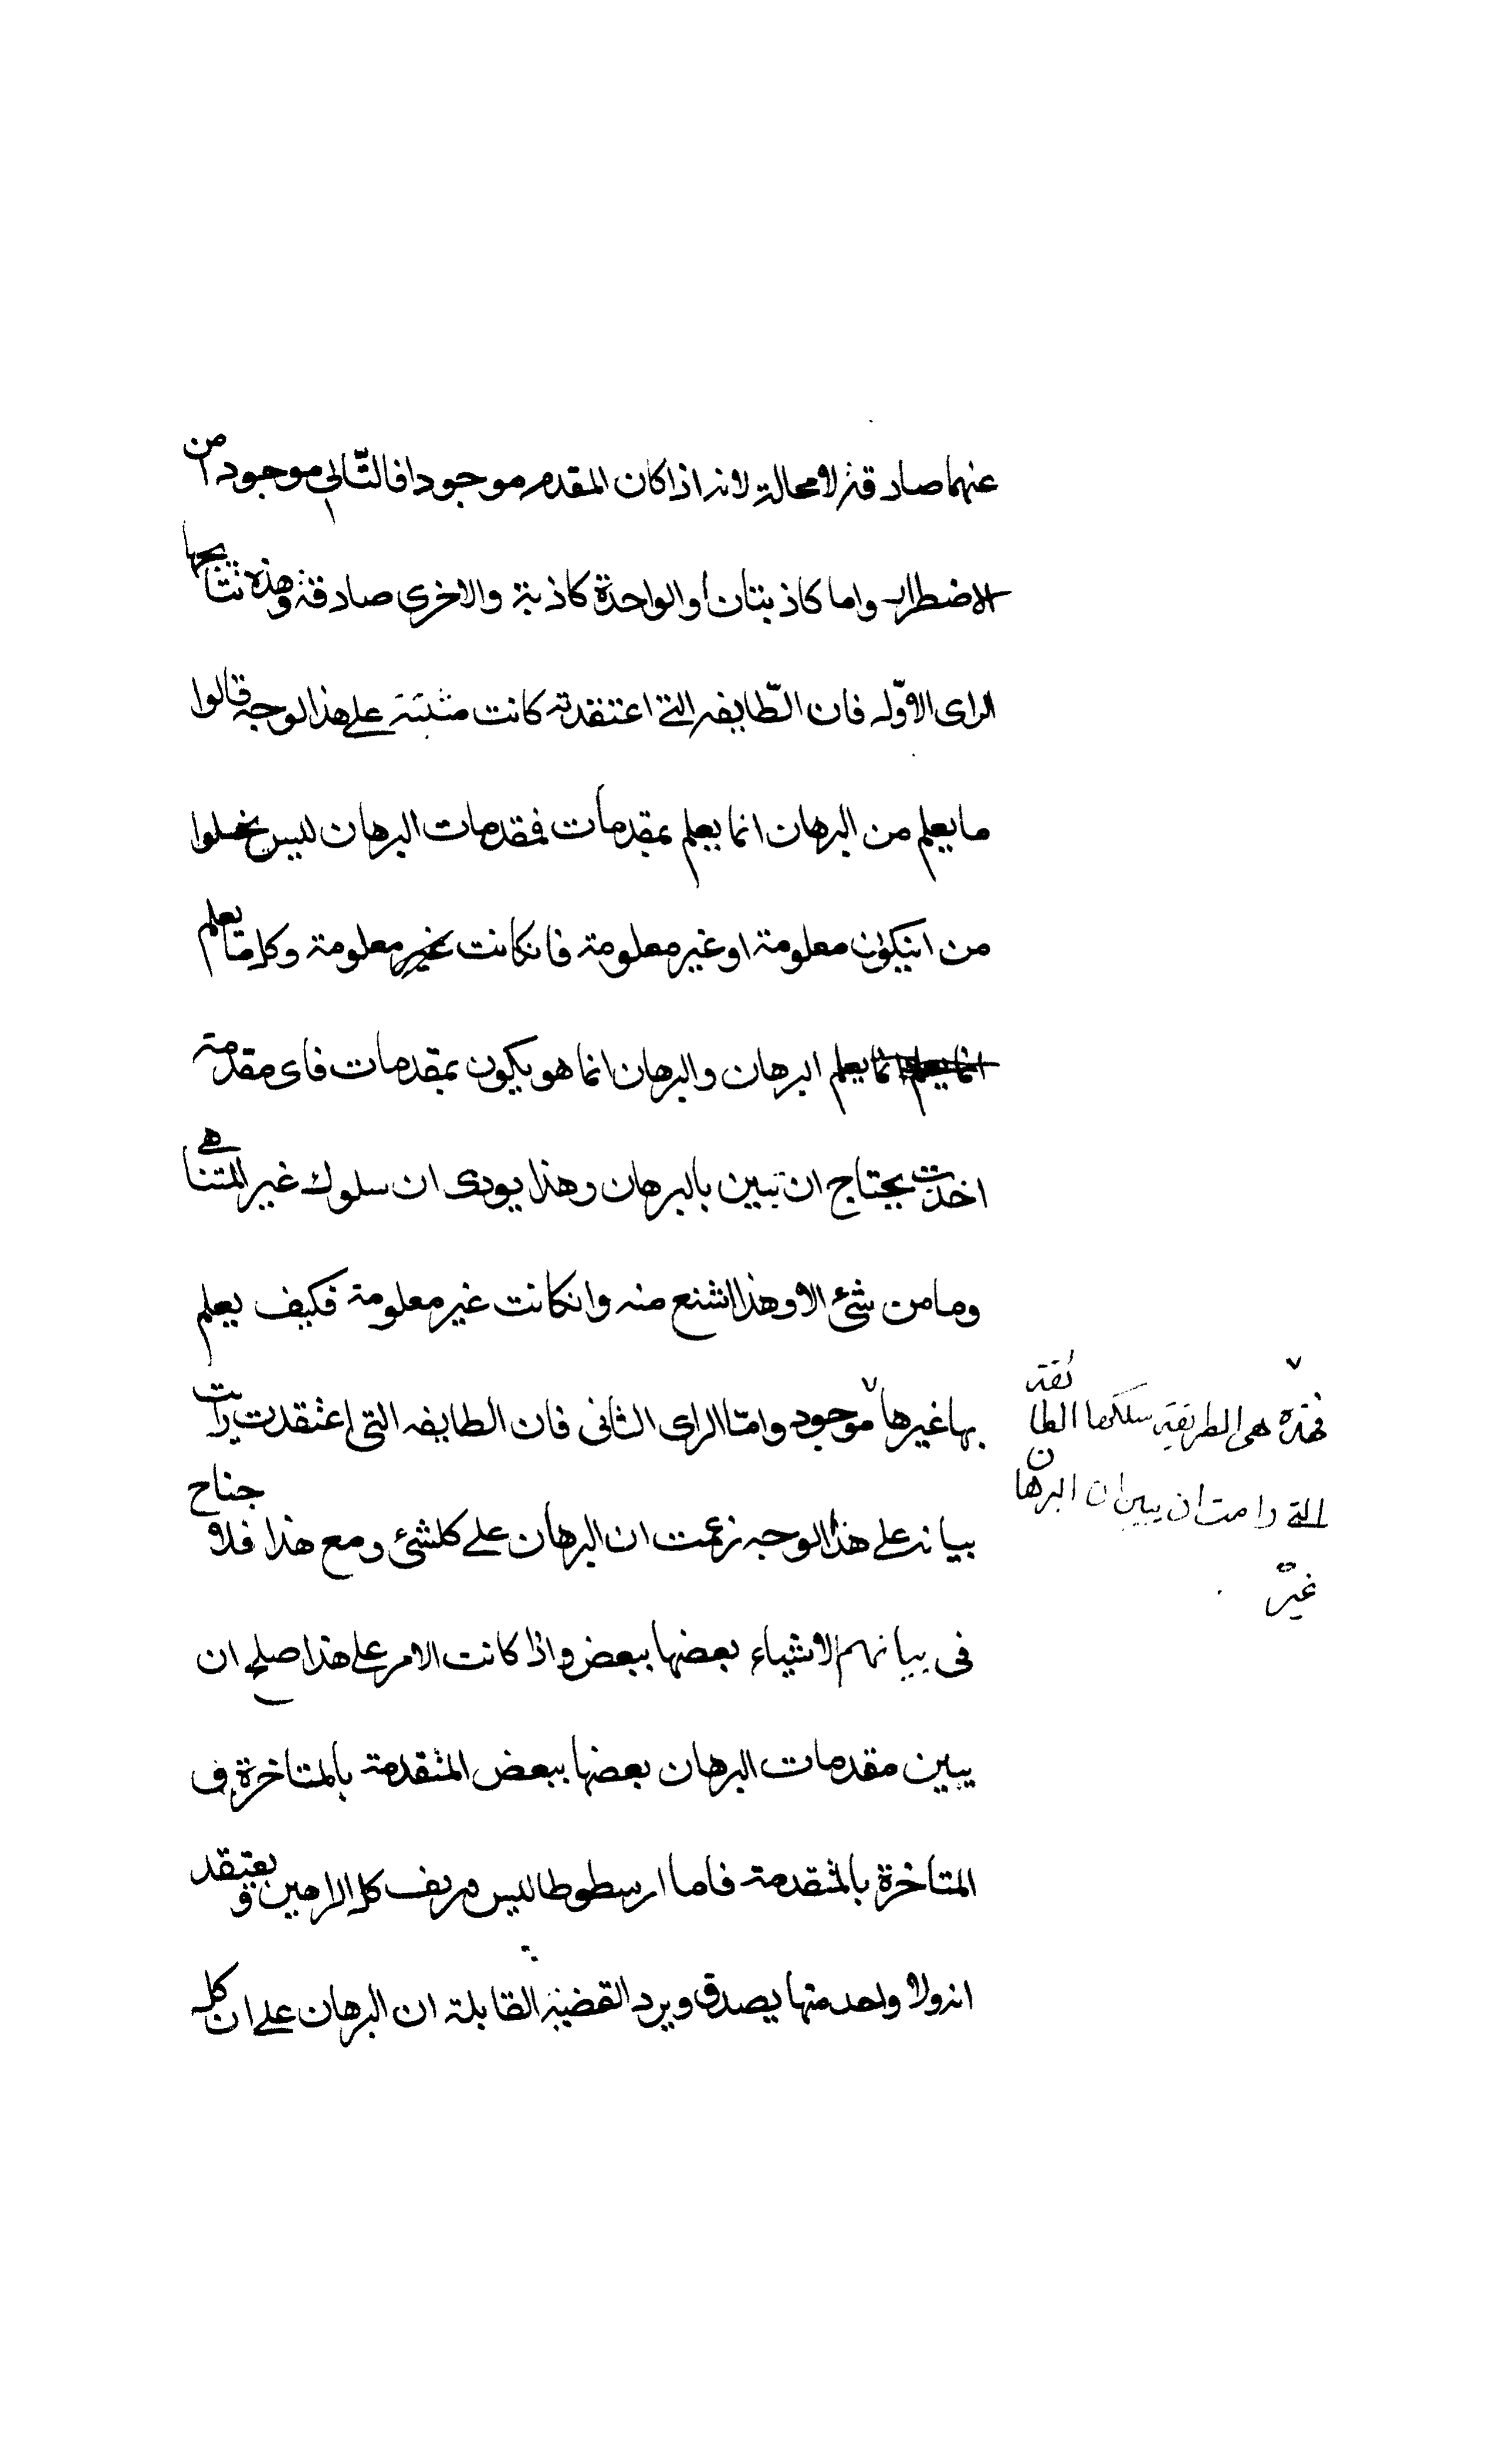 عنهما صادقة لا محالة لانه اذا كان المقدم موجودا فالتالى موجودا من
الاضطرار واما كاذبتان او الواحدة كاذبة والاخرى صادقة وهذه نتايجها
الراى الاوّله فان الطّايفه التى اعتقدته كانت مثبته على هذا الوجه قالوا
ما يعلم من البرهان انما يعلم بمقدمات فمقدمات البرهان ليس يخلوا
من انيكون معلومة او غير معلومة فانكانت غير معلومة وكل ما يعلم
انما يعلم انما يعلم البرهان والبرهان انما هو يكون بمقدمات فاى مقدمة
اخذت يحتاج ان تبين بالبرهان وهذا يودى ان سلوك غير المتناهى
وما من شئ الا وهذا اشنع منه وانكانت غير معلومة فكيف يعلم
بها غيرها موجود وامّا الراى الثانى فان الطايفه التى اعتقدت رات
بيانه على هذا الوجه زعمت ان البرهان على كلشئ ومع هذا فلا جناح
فى بيانهم الاشياء بعضها ببعض واذا كانت الامر على هذا صلح ان
يبين مقدمات البرهان بعضها ببعض المتقدمة بالمتاخرة و
المتاخرة بالمتقدمة فاما ارسطوطاليس كل و يعتقد
انه ولا واحد منها يصدق ويرد القضية القابلة ان البرهان على ان كل
فهذه هى الطريقة سلكها الطائفة
التى رامت ان يبين ان البرهان
غير